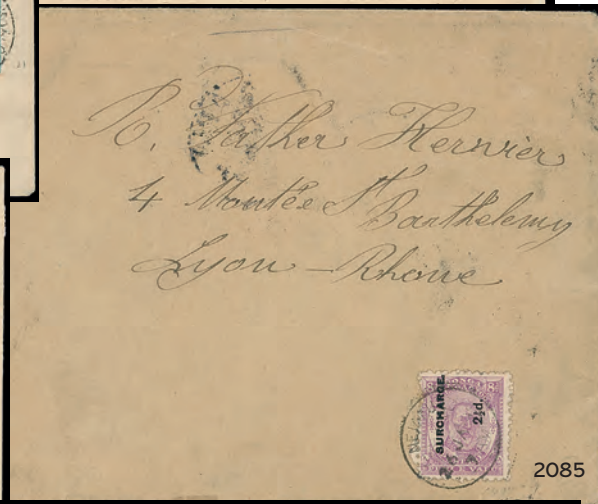 R. Father Hervier
4 Montée St Barthelemy
Lyon - Rhone
SURCHARGE.
2½d.
2085